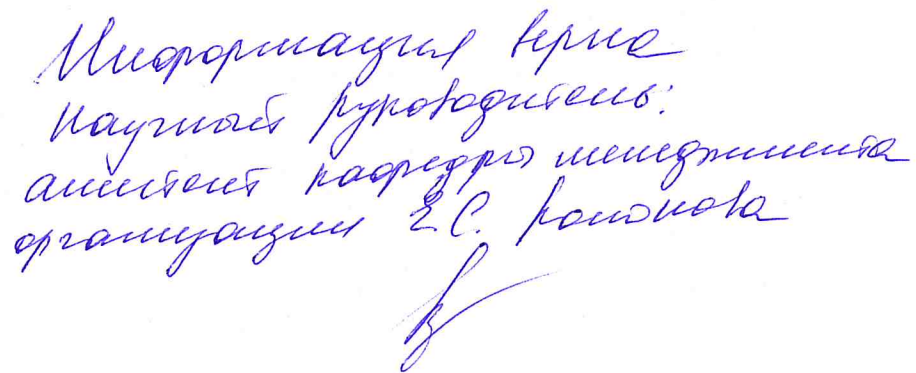 Информация верна
Научный руководитель:
ассистент кафедры менеджмента
организации Е.С. Кононова